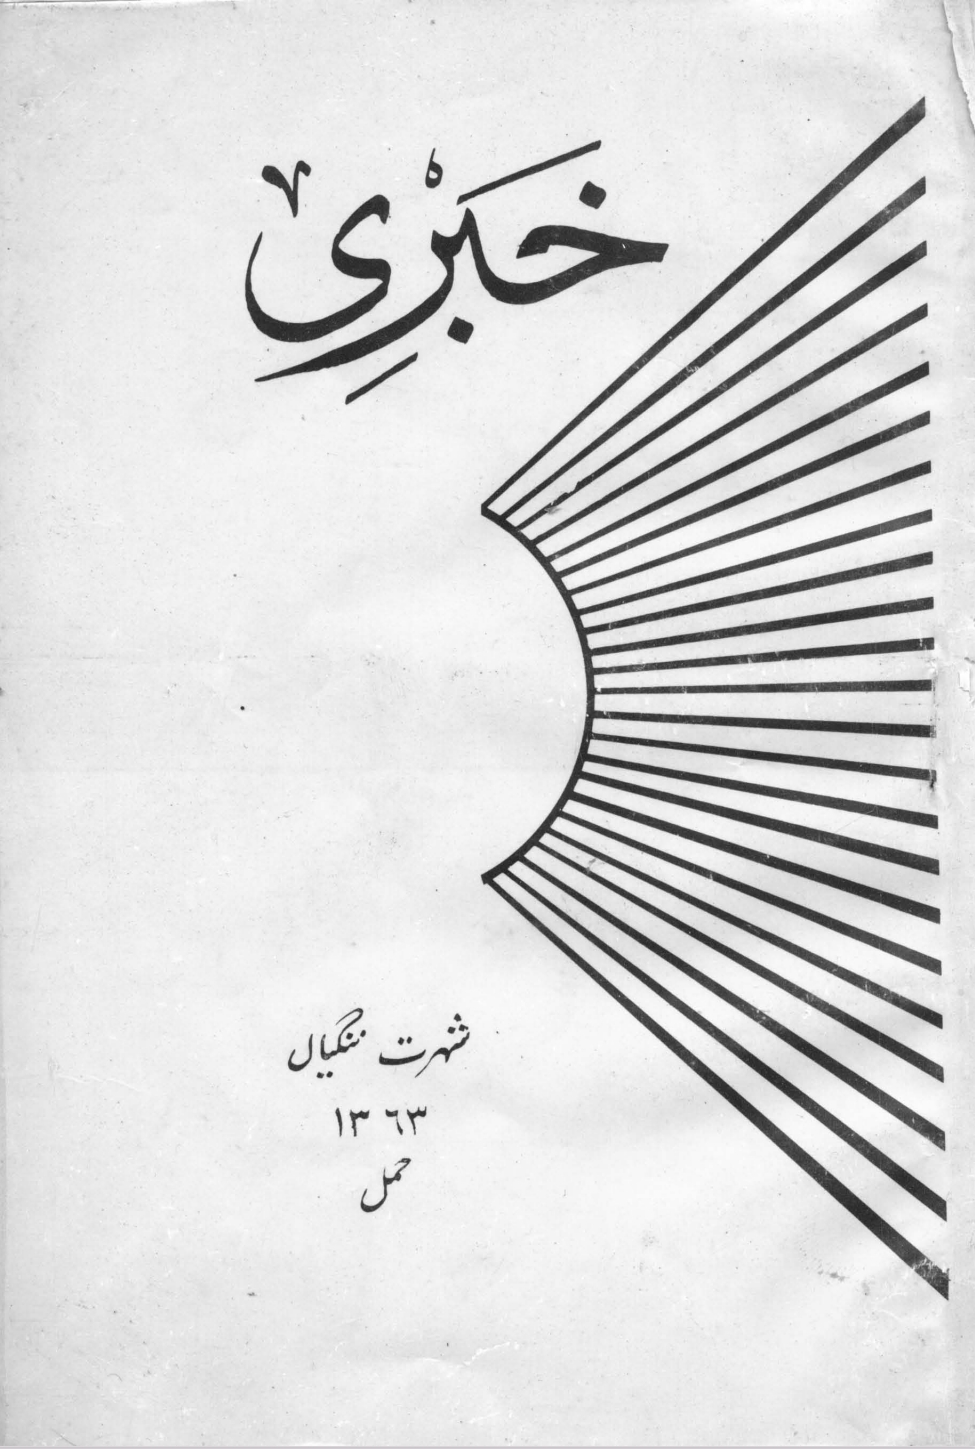 خبرې
شهرت ننګیال
۱۳۶۳
حمل